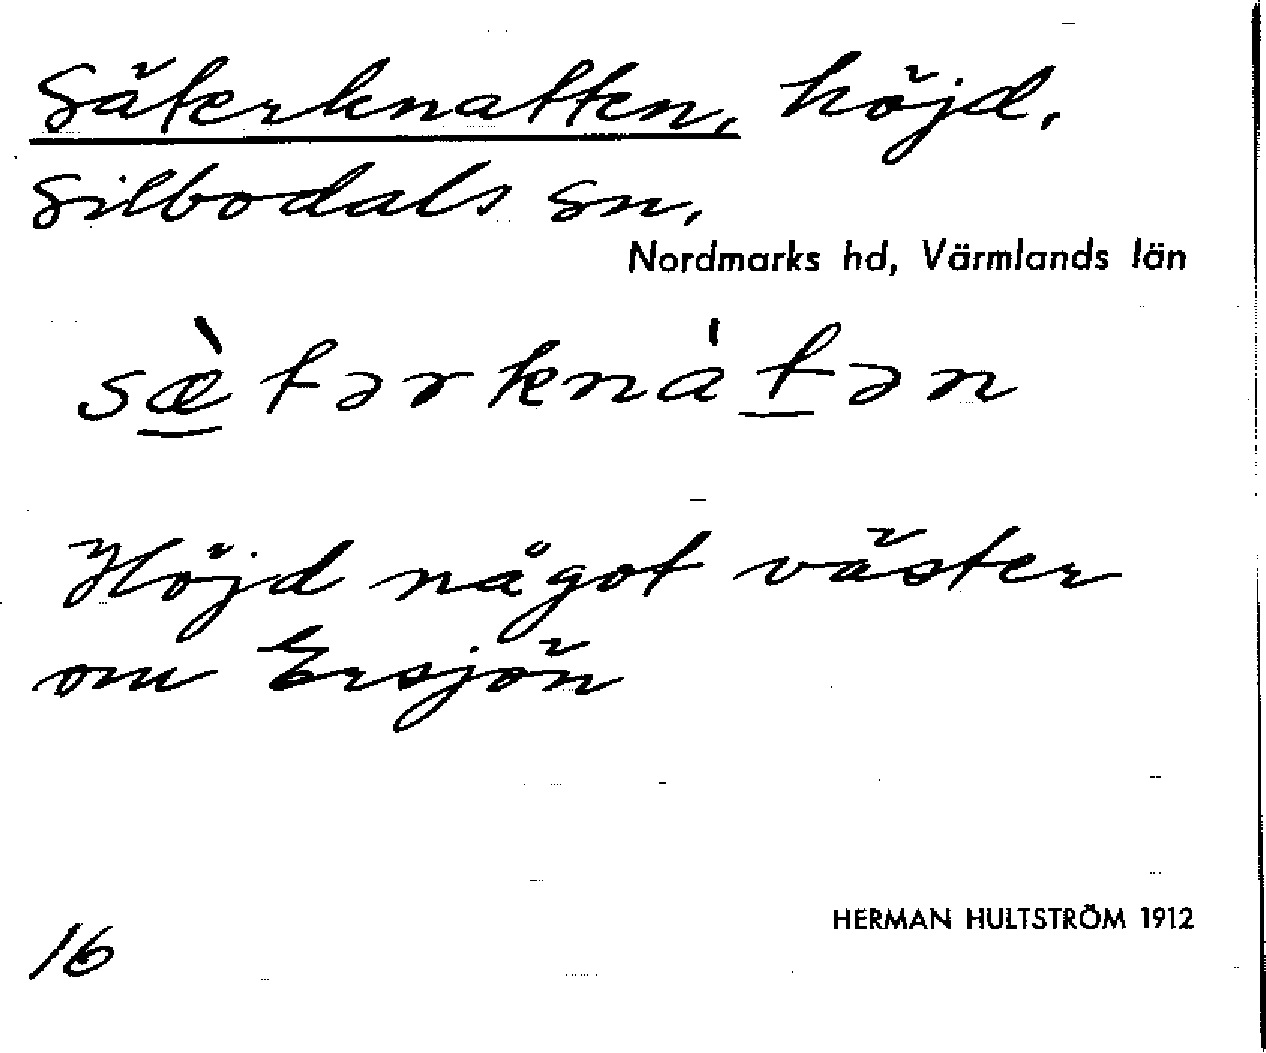 Säterknatten, höjd,
Silbodals sn,
Nordmarks hd, Värmlands län
sæ̀tərknátən
Höjd något väster
om Ersjön
HERMAN HULTSTRÖM 1912
16